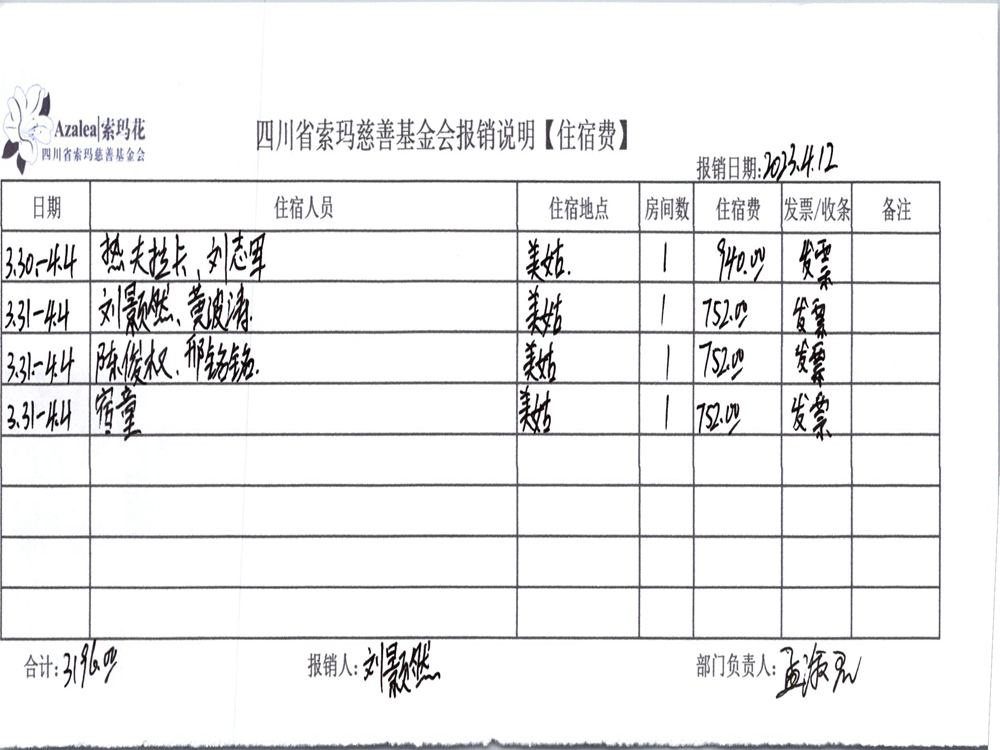 Azalea|索玛花
四川省索玛慈善基金会
四川省索玛慈善基金会报销说明【住宿费】
报销日期:2023.4.12
日期 住宿人员 住宿地点 房间数 住宿费 发票/收条 备注
3.30-4.4 热夫拉卡、刘志军 美姑. 1 940.00 发票
3.31-4.4 刘颢然、黄波涛. 美姑 1 752.00 发票
3.31-4.4 陈俊权、邢铭铭. 美姑 1 752.00 发票
3.31-4.4 宿童 美姑 1 752.00 发票
合计:3196.00 报销人:刘颢然 部门负责人:孟